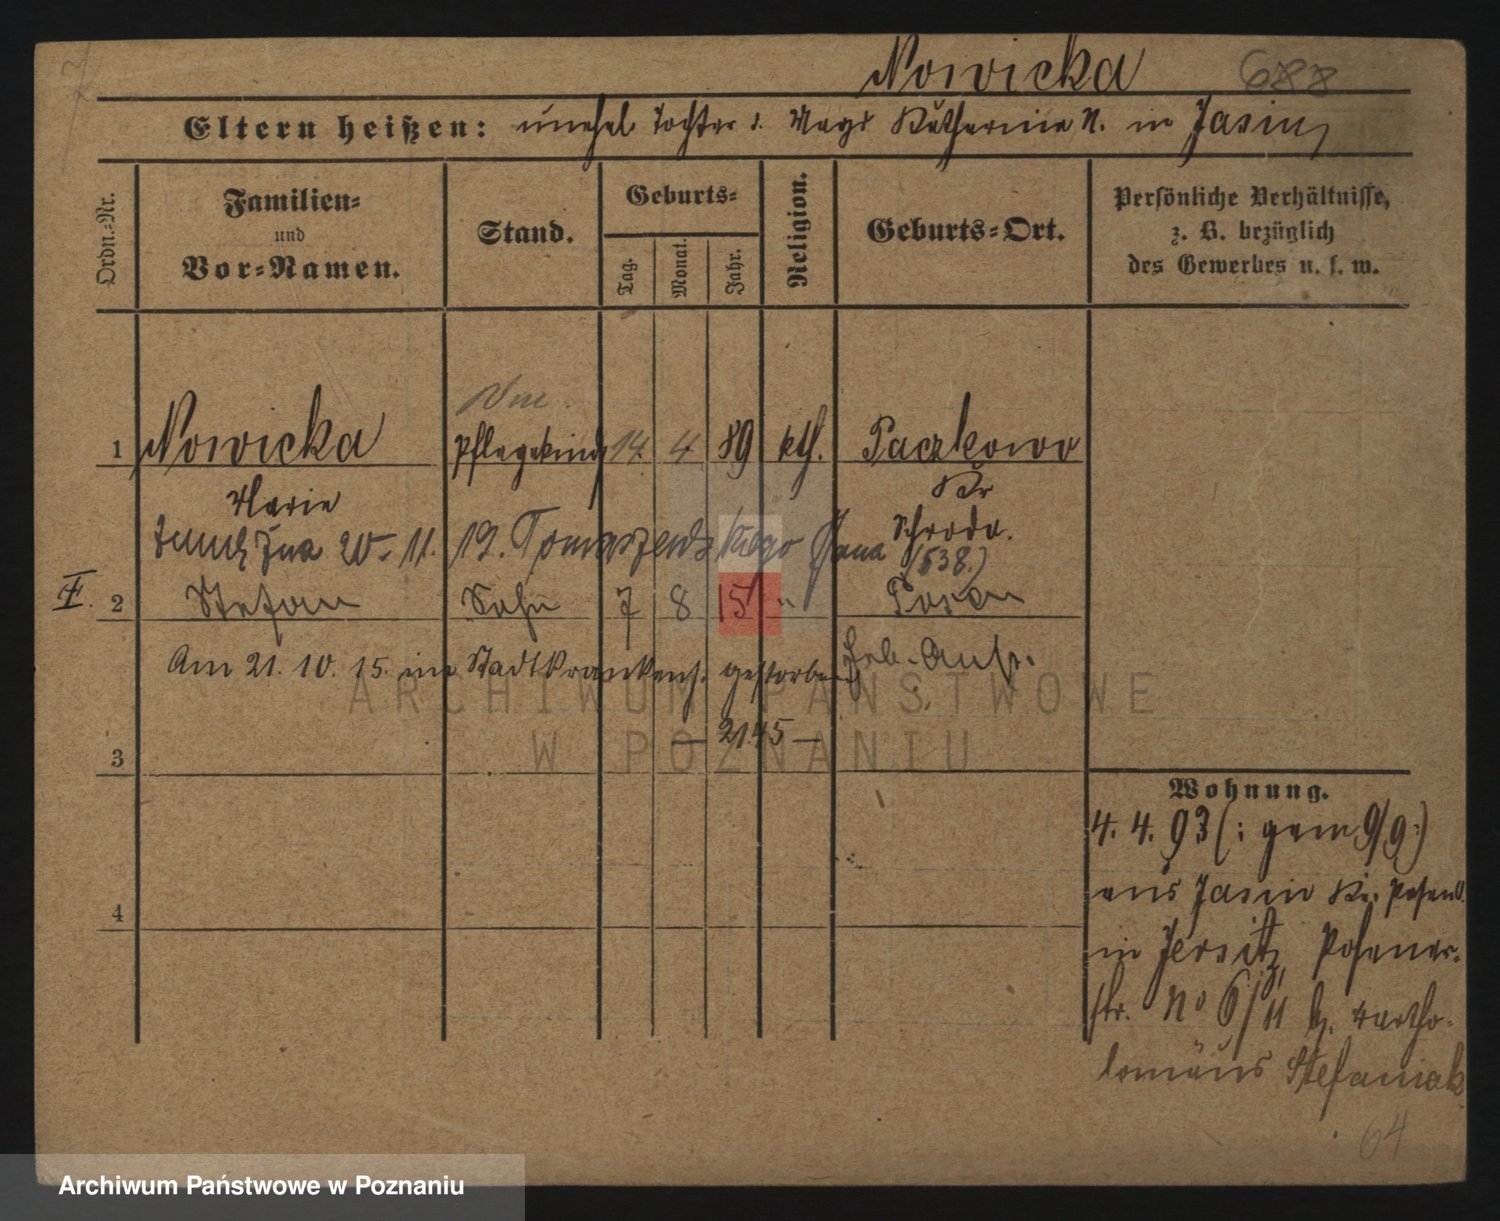 Nowicka 688
Eltern heißen: unehel. Tochter d. Magd Katharina N. in Jasin,
Ordn.-Nr.
Familien-
und
Vor-Namen.
Stand.
Geburts-
Tag.
Monat.
Jahr.
Religion.
Geburts-Ort.
Persönliche Verhältnisse,
z. B. bezüglich
des Gewerbes u. s. w.
1 Nowicka Pflegekind 14. 4 89 kth. Paczkowo
Marie Kr
Schroda.
20. 11. 19. Tomaszewskiego Jana (538.)
II. 2 Stefan Sohn 7 8 15 " Posen
Am 21. 10. 15. im Stadtkrankenh. gestorben
Geb. Anst.
— 2145 —
3
4
Wohnung.
4. 4. 93 (: gem. 9/9 :)
aus Jasin Kr. Posen
in Jersitz, Posener-
str. No 6/II b. Bartho-
lomäus Stefaniak
64
ARCHIWUM PAŃSTWOWE
W POZNANIU
Archiwum Państwowe w Poznaniu